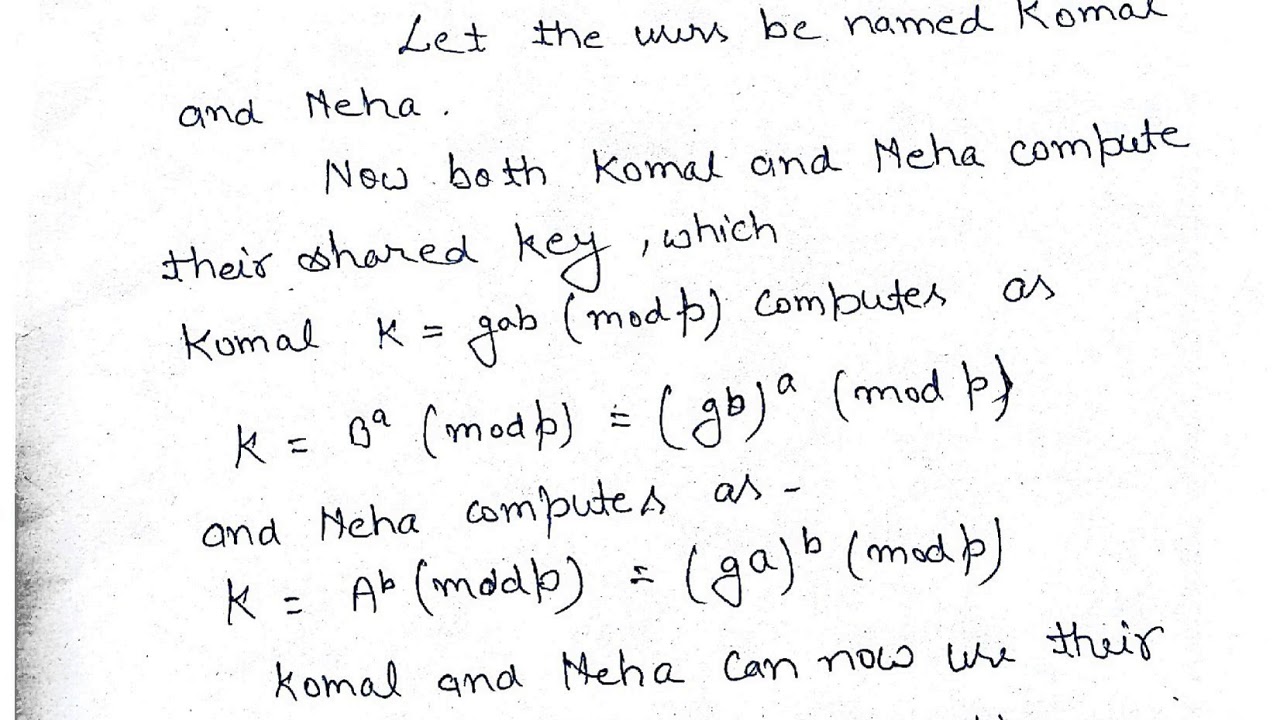 Let the users be named Komal
and Neha.
Now both Komal and Neha compute
their shared key, which
Komal K = gab (mod p) computes as
K = Bᵃ (mod p) = (gb)ᵃ (mod p)
and Neha computes as -
K = Aᵇ (mod p) = (ga)ᵇ (mod p)
Komal and Neha can now use their